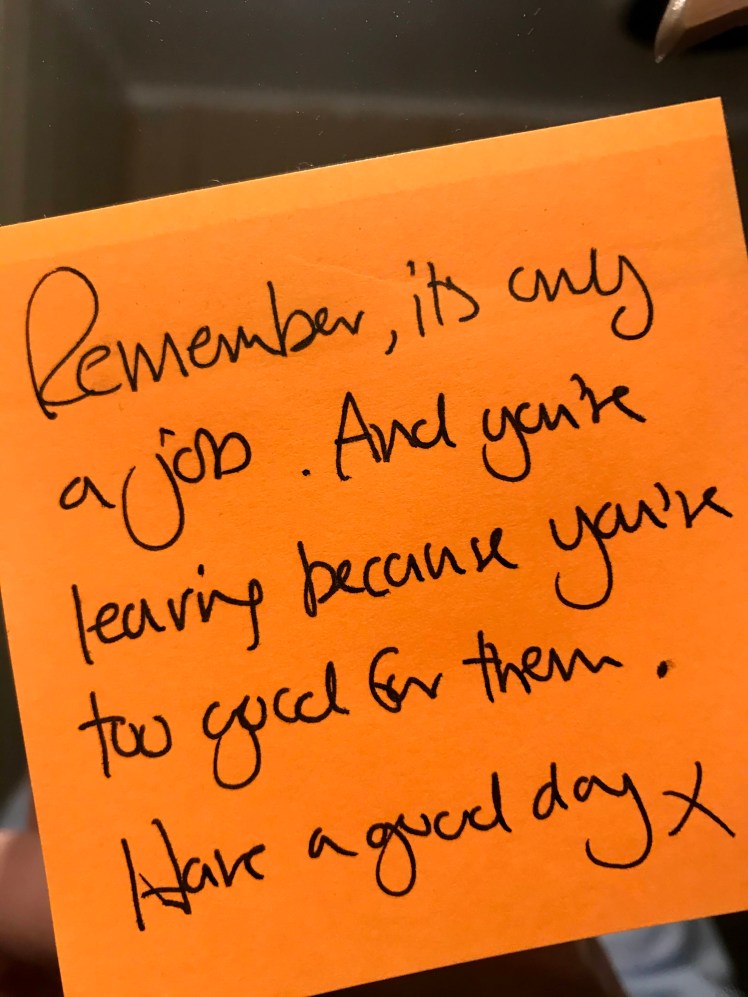 Remember, its only
a job. And you're
leaving because you're
too good for them.
Have a good day x